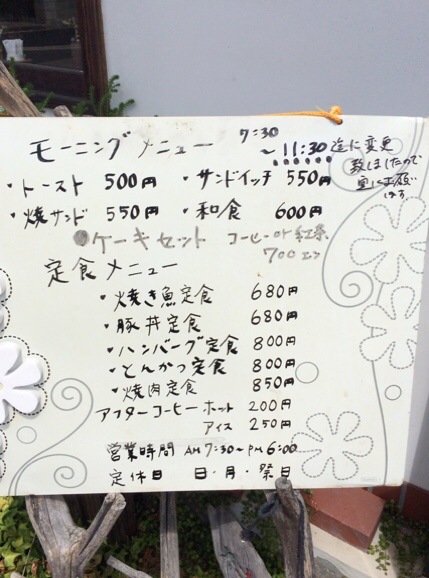 モーニングメニュー 7:30
～11:30迄に変更
致しましたので
・トースト 500円 ・サンドイッチ 550円
・焼サンド 550円 ・和食 600円
ケーキセット コーヒーor紅茶
700エン
定食メニュー
・焼き魚定食 680円
・豚丼定食 680円
・ハンバーグ定食 800円
・とんかつ定食 800円
・焼肉定食 850円
アフターコーヒー ホット 200円
アイス 250円
営業時間 AM7:30～PM6:00
定休日 日・月・祭日